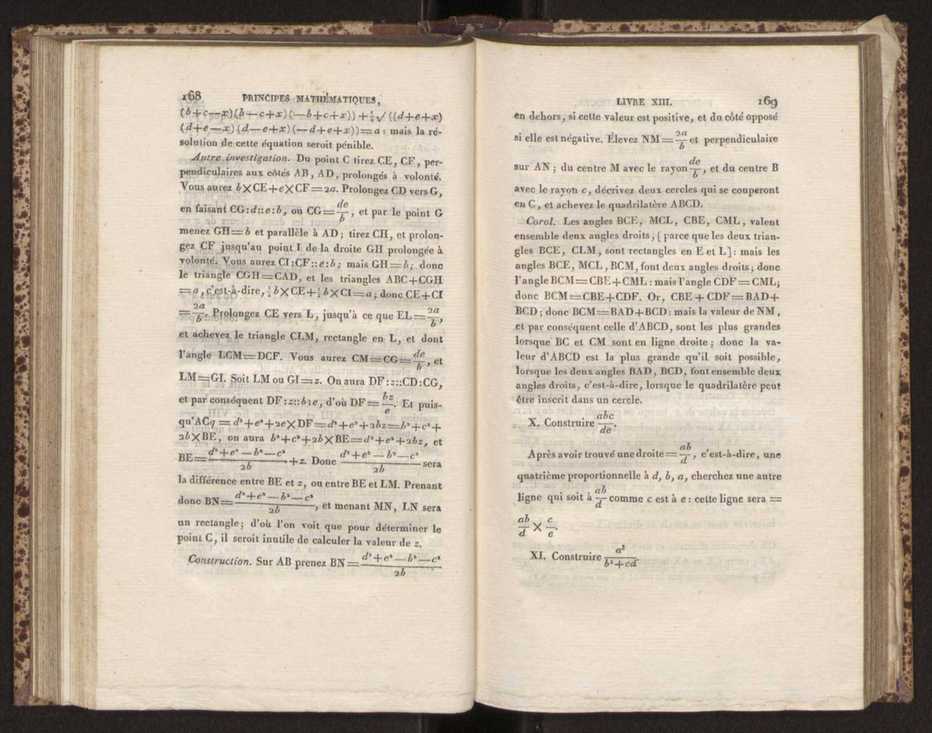 168 PRINCIPES MATHÉMATIQUES,
(b+c−x)(b−c+x)(−b+c+x)) + ¼√((d+e+x)
(d+e−x)(d−e+x)(−d+e+x))=a : mais la ré-
solution de cette équation seroit pénible.
Autre investigation. Du point C tirez CE, CF, per-
pendiculaires aux côtés AB, AD, prolongés à volonté.
Vous aurez b×CE+e×CF=2a. Prolongez CD vers G,
en faisant CG:d::e:b, ou CG=de/b, et par le point G
menez GH=b et parallèle à AD; tirez CH, et prolon-
gez CF jusqu'au point I de la droite GH prolongée à
volonté. Vous aurez CI:CF::e:b; mais GH=b, donc
le triangle CGH=CAD, et les triangles ABC+CGH
=a, c'est-à-dire, ½b×CE+½b×CI=a; donc CE+CI
=2a/b. Prolongez CE vers L, jusqu'à ce que EL=2a/b,
et achevez le triangle CLM, rectangle en L, et dont
l'angle LCM=DCF. Vous aurez CM=CG=de/b, et
LM=GI. Soit LM ou GI=z. On aura DF:z::CD:CG,
et par conséquent DF:z::b:e, d'où DF=bz/e. Et puis-
qu'ACq=d²+e²+2e×DF=d²+e²+2bz=b²+c²+
2b×BE, on aura b²+c²+2b×BE=d²+e²+2bz, et
BE=(d²+e²−b²−c²)/2b+z. Donc (d²+e²−b²−c²)/2b sera
la différence entre BE et z, ou entre BE et LM. Prenant
donc BN=(d²+e²−b²−c²)/2b, et menant MN, LN sera
un rectangle; d'où l'on voit que pour déterminer le
point C, il seroit inutile de calculer la valeur de z.
Construction. Sur AB prenez BN=(d²+e²−b²−c²)/2b
LIVRE XIII. 169
en dehors, si cette valeur est positive, et du côté opposé
si elle est négative. Élevez NM=2a/b et perpendiculaire
sur AN; du centre M avec le rayon de/b, et du centre B
avec le rayon c, décrivez deux cercles qui se couperont
en C, et achevez le quadrilatère ABCD.
Corol. Les angles BCE, MCL, CBE, CML, valent
ensemble deux angles droits, [parce que les deux trian-
gles BCE, CLM, sont rectangles en E et L]: mais les
angles BCE, MCL, BCM, font deux angles droits; donc
l'angle BCM=CBE+CML: mais l'angle CDF=CML;
donc BCM=CBE+CDF. Or, CBE+CDF=BAD+
BCD; donc BCM=BAD+BCD: mais la valeur de NM,
et par conséquent celle d'ABCD, sont les plus grandes
lorsque BC et CM sont en ligne droite; donc la va-
leur d'ABCD est la plus grande qu'il soit possible,
lorsque les deux angles BAD, BCD, font ensemble deux
angles droits, c'est-à-dire, lorsque le quadrilatère peut
être inscrit dans un cercle.
X. Construire abc/de.
Après avoir trouvé une droite=ab/d, c'est-à-dire, une
quatrième proportionnelle à d, b, a, cherchez une autre
ligne qui soit à ab/d comme c est à e: cette ligne sera =
ab/d × c/e.
XI. Construire a³/(b²+cd)